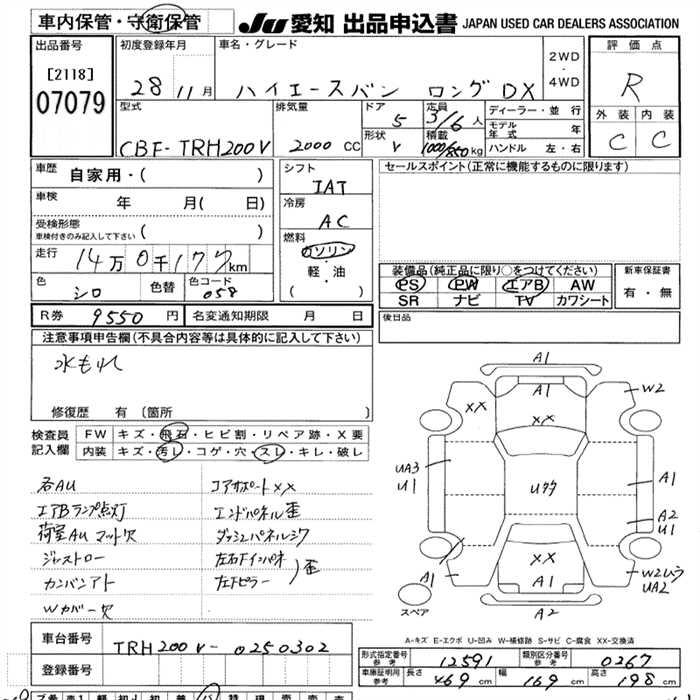 車内保管・守衛保管
JU 愛知 出品申込書 JAPAN USED CAR DEALERS ASSOCIATION
出品番号
[2118]
07079
初度登録年月
28 11月
車名・グレード
ハイエースバン ロング DX
2WD
・
4WD
評価点
R
外装 内装
C C
型式
CBF-TRH200V
排気量
2000 CC
ドア
5
形状
V
定員
3/6人
積載
1000/850kg
ディーラー・並行
モデル年式 年
ハンドル 左・右
車歴
自家用・( )
車検
年 月( 日)
受検形態
車検付きのみ記入して下さい ( )
走行
14万0千177km
色
シロ
色替
色コード
058
シフト
IAT
冷房
AC
燃料
ガソリン
・
軽・油
( )
セールスポイント(正常に機能するものに限ります)
装備品(純正品に限り○をつけてください)
PS PW エアB AW
SR ナビ TV カワシート
新車保証書
有・無
R券 9550円
名変通知期限 月 日
後日品
注意事項申告欄(不具合内容等は具体的に記入して下さい)
水もれ
修復歴 有〔箇所 〕
検査員記入欄
FW キズ・飛石・ヒビ割・リペア跡・X要
内装 キズ・汚レ・コゲ・穴・スレ・キレ・破レ
各AU コアサポートXX
エアBランプ点灯 エンドパネル歪
荷室AU マット欠 ダッシュパネルシワ
ジャストロー 左右Fインパネ
カンバンアト 左Fピラー )歪
Wカバー欠
A1
A1
XX
XX
W2
UA3
U1
A1
A2
U1
XX
A1
A1
W2
UA2
A2
スペア
A-キズ E-エクボ U-凹み W-補修跡 S-サビ C-腐食 XX-交換済
車台番号
TRH200V-0250302
登録番号
形式指定番号
参考
12591
類別区分番号
参考
0267
車庫証明用
参考
長さ 469cm 幅 169cm 高さ 198cm